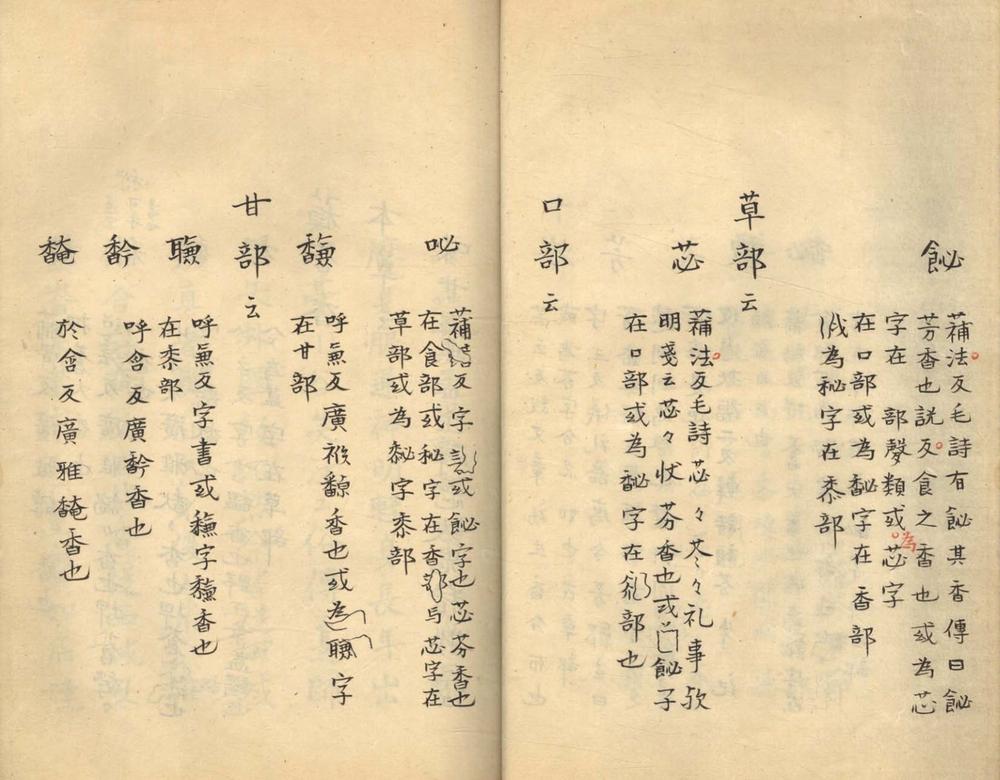 飶
蒱法反毛詩有飶其香傳曰飶
芳香也説反食之香也或為苾
字在 部聲類或為苾字
在口部或為馝字在香部
為秘字在黍部
草部云
苾
蒱法反毛詩苾々芬々礼事
明箋云苾々状芬香也或 飶子
在口部或為馝字在 部也
口部云
咇
蒱 反字 或飶字也苾芬香也
在食部或秘字在香 与苾字在
草部或為䄶字黍部
馦
呼兼反廣 香也或為 字
在甘部
甘部云
呼兼反字書或 字 香也
在黍部
馠
呼含反廣馠香也
馣
於含反廣雅馣香也